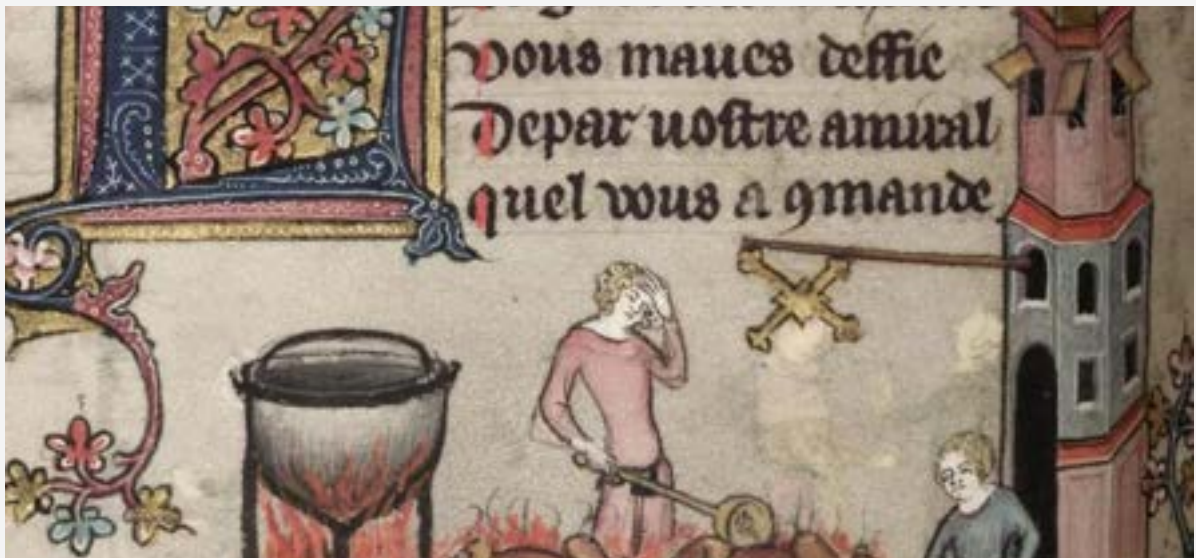 vous maues deffie
Depar uostre amiral
quel vous a 9mande